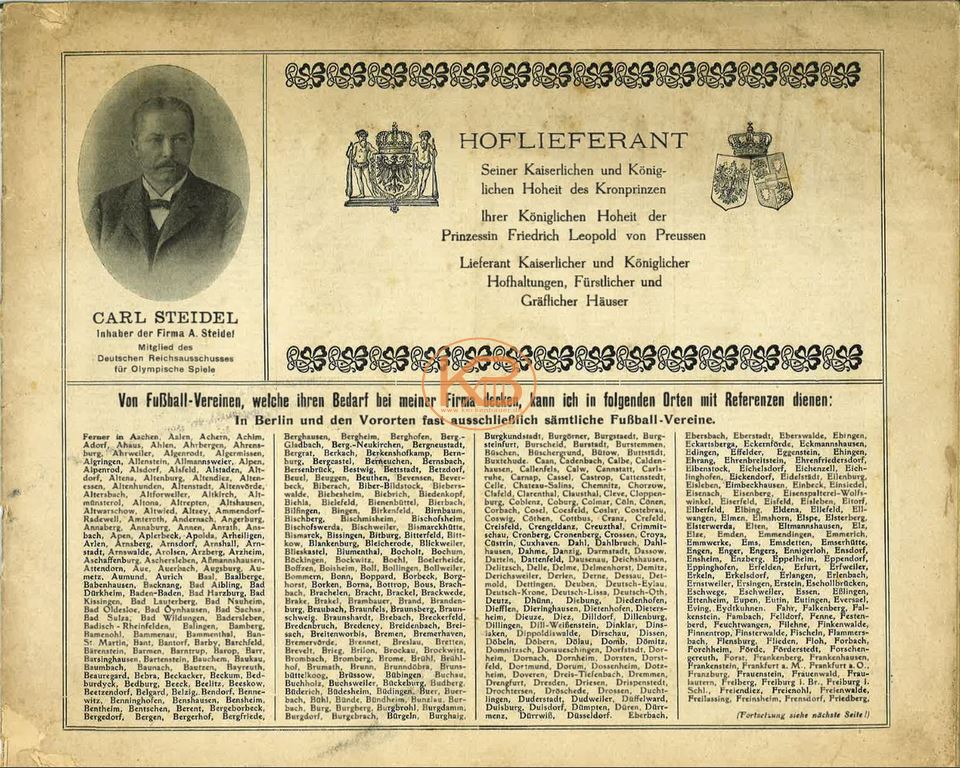 CARL STEIDEL
Inhaber der Firma A. Steidel
Mitglied des
Deutschen Reichsausschusses
für Olympische Spiele
HOFLIEFERANT
Seiner Kaiserlichen und König-
lichen Hoheit des Kronprinzen
Ihrer Königlichen Hoheit der
Prinzessin Friedrich Leopold von Preussen
Lieferant Kaiserlicher und Königlicher
Hofhaltungen, Fürstlicher und
Gräflicher Häuser
Von Fußball-Vereinen, welche ihren Bedarf bei meiner Firma decken, kann ich in folgenden Orten mit Referenzen dienen:
In Berlin und den Vororten fast ausschließlich sämtliche Fußball-Vereine.
Ferner in Aachen, Aalen, Achern, Achim,
Adorf, Ahaus, Ahlen, Ahrbergen, Ahrens-
burg, Ahrweiler, Algenrodt, Algermissen,
Algringen, Allenstein, Allmannsweier, Alpen,
Alpenrod, Alsdorf, Alsfeld, Alstaden, Alt-
dorf, Altena, Altenburg, Altendiez, Alten-
essen, Altenhunden, Altenstadt, Altenvörde,
Altersbach, Altforweiler, Altkirch, Alt-
münsterol, Altona, Altrepten, Altshausen,
Altwarschow, Altwied, Altzey, Ammendorf-
Radewell, Amteroth, Andernach, Angerburg,
Annaberg, Annaburg, Annen, Anrath, Ans-
bach, Apen, Aplerbeck, Apolda, Arheiligen,
Arlen, Arnsberg, Arnsdorf, Arnshall, Arn-
stadt, Arnswalde, Arolsen, Arzberg, Arzheim,
Aschaffenburg, Aschersleben, Aßmannshausen,
Attendorn, Aue, Auerbach, Augsburg, Au-
metz, Aumund, Aurich, Baal, Baalberge,
Babenhausen, Backnang, Bad Aibling, Bad
Dürkheim, Baden-Baden, Bad Harzburg, Bad
Kissingen, Bad Lauterberg, Bad Nauheim,
Bad Oldesloe, Bad Oynhausen, Bad Sachsa,
Bad Sulza, Bad Wildungen, Badersleben,
Badisch-Rheinfelden, Balingen, Bamberg,
Bamenohl, Bammenau, Bammenthal, Ban-
St. Martin, Bantorf, Barby, Barchfeld,
Bärenstein, Barmen, Barntrup, Barop, Barr,
Barsinghausen, Bartenstein, Bauchem, Baukau,
Baumbach, Baunach, Bautzen, Bayreuth,
Beauregard, Bebra, Beckacker, Beckum, Bed-
burdyck, Bedburg, Beeck, Beelitz, Beeskow,
Beetzendorf, Belgard, Belzig, Bendorf, Benne-
witz, Benninghofen, Benshausen, Bensheim,
Bentheim, Bentschen, Berent, Bergeborbeck,
Bergedorf, Bergen, Bergerhof, Bergfriede,
Berghausen, Bergheim, Berghofen, Berg.-
Gladbach, Berg.-Neukirchen, Bergneustadt,
Bergrat, Berkach, Berkenshofkamp, Bern-
burg, Bergcastel, Berneuchen, Bernsbach,
Bersenbrück, Bestwig, Bettstadt, Betzdorf,
Beuel, Beuggen, Beuthen, Bevensen, Bever-
beck, Biberach, Biber-Bildstock, Biebers-
walde, Biebesheim, Biebrich, Biedenkopf,
Biehla, Bielefeld, Bienenbüttel, Bierbach,
Bilfingen, Bingen, Birkenfeld, Birnbaum,
Bischberg, Bischmisheim, Bischofsheim,
Bischofswerda, Bischweiler, Bismarckhütte,
Bismarck, Bissingen, Bitburg, Bitterfeld, Bitt-
kow, Blankenburg, Bleicherode, Blickweiler,
Blieskastel, Blumenthal, Bocholt, Bochum,
Böckingen, Bockwitz, Boehl, Boelerheide,
Boffzen, Boisheim, Boll, Bollingen, Bollweiler,
Bommern, Bonn, Boppard, Borbeck, Borg-
horst, Borken, Borna, Bottrop, Bous, Brach-
bach, Brachelen, Bracht, Brackel, Brackwede,
Brake, Brakel, Brambauer, Brand, Branden-
burg, Braubach, Braunfels, Braunsberg, Braun-
schweig, Braunshardt, Brebach, Breckerfeld,
Bredenbruch, Bredeney, Breidenbach, Brei-
sach, Breitenworbis, Bremen, Bremerhaven,
Bremervörde, Brennet, Breslau, Bretten,
Brevelt, Brieg, Brilon, Brockau, Brockwitz,
Brombach, Bromberg, Brome, Brühl, Brühl-
hof, Brumath, Brunn, Brunndöbra, Bruns-
büttelkoog, Brüssow, Bübingen, Buchau,
Buchholz, Buchsweiler, Bückeburg, Budberg,
Büderich, Büdesheim, Büdingen, Buer, Buer-
bach, Bühl, Bünde, Bündheim, Bunzlau, Bur-
bach, Burg, Burgberg, Burgbrohl, Burgdamm,
Burgdorf, Burgebrach, Bürgeln, Burghaig,
Burgkundstadt, Burgörner, Burgstadt, Burg-
steinfurt, Burscheid, Burstadt, Burstemmen,
Büschen, Büschergrund, Bütow, Buttstädt,
Buxtehude, Caan, Cadenbach, Calbe, Calden-
hausen, Callenfels, Calw, Cannstatt, Carls-
ruhe, Carnap, Cassel, Castrop, Cattenstedt,
Celle, Chateau-Salins, Chemnitz, Chorzow,
Clafeld, Clarenthal, Clausthal, Cleve, Cloppen-
burg, Coblenz, Coburg, Colmar, Cüln, Cönen,
Corbach, Cosel, Coesfeld, Coslar, Costebrau,
Coswig, Cöthen, Cottbus, Cranz, Crefeld,
Creisfeld, Crengeldanz, Creuzthal, Crimmit-
schau, Cronberg, Cronenberg, Crossen, Croya,
Cüstrin, Cuxhaven, Dahl, Dahlbruch, Dahl-
hausen, Dahme, Danzig, Darmstadt, Dassow,
Datteln, Dattenfeld, Dausenau, Deichhausen,
Delitzsch, Delle, Delme, Delmenhorst, Demmin,
Derichsweiler, Derlen, Derne, Dessau, Det-
mold, Dettingen, Deuben, Deutsch-Eylau,
Deutsch-Krone, Deutsch-Lissa, Deutsch-Oth,
Deutz, Dhünn, Diebung, Diedenhofen,
Diefflen, Dieringhausen, Dietenhofen, Dieters-
heim, Dieuze, Diez, Dilldorf, Dillenburg,
Dillingen, Dill-Weißenstein, Dinklar, Dins-
laken, Dippoldiswalde, Dirschau, Dissen,
Döbeln, Döbern, Dölau, Domb, Dömitz,
Domnitzsch, Donaueschingen, Dorfstadt, Dor-
heim, Dornach, Dornheim, Dorsten, Dorst-
feld, Dortmund, Dorum, Dossenheim, Dotz-
heim, Doveren, Dreis-Tiefenbach, Dremmen,
Drengfurt, Dresden, Driesen, Drispenstedt,
Drochtersen, Dröschede, Drossen, Ducht-
lingen, Duderstadt, Dudweiler, Düffelward,
Duisburg, Duisdorf, Dümpten, Düren, Dürr-
menz, Dürrwiß, Düsseldorf, Eberbach,
Ebersbach, Eberstadt, Eberswalde, Ebingen,
Eckartsberga, Eckernförde, Eckmannshausen,
Edingen, Effelder, Eggenstein, Ehingen,
Ehrang, Ehrenbreitstein, Ehrenfriedersdorf,
Eibenstock, Eichelsdorf, Eichenzell, Eich-
linghofen, Eickendorf, Eidelstädt, Eilenburg,
Eisleben, Eimbeckhausen, Einbeck, Einsiedel,
Eisenach, Eisenberg, Eisenspalterei-Wolfs-
winkel, Eiserfeld, Eisfeld, Eisleben, Eitorf,
Elberfeld, Elbing, Eldena, Ellefeld, Ell-
wangen, Elmen, Elmshorn, Elspe, Elsterberg,
Elsterwerda, Elten, Eltmannshausen, Eltville,
Elze, Emden, Emmendingen, Emmerich,
Emmwerke, Ems, Emsdetten, Emserhütte,
Engen, Enger, Engers, Ennigerloh, Ensdorf,
Ensheim, Enzberg, Eppelheim, Eppendorf,
Eppinghofen, Erfelden, Erfurt, Erfweiler,
Erkeln, Erkelsdorf, Erlangen, Erlenbach,
Ernstweiler, Ersingen, Erstein, Eschollbrücken,
Eschwege, Eschweiler, Essen, Eßlingen,
Ettenheim, Eupen, Eutin, Eutingen, Eversael,
Eving, Eydtkuhnen, Fahr, Falkenberg, Fal-
kenstein, Fambach, Felldorf, Fenne, Festen-
berg, Feuchtwangen, Filehne, Finkenwalde,
Finnentrop, Finsterwalde, Fischeln, Flammers-
bach, Flensburg, Flieden, Floh, Forbach,
Forchheim, Förde, Förderstedt, Forschen-
gereuth, Forst, Frankenberg, Frankenhausen,
Frankenstein, Frankfurt a. M., Frankfurt a. O.,
Franzburg, Frauenstein, Frauenwald, Frau-
lautern, Freiberg, Freiburg i. Br., Freiburg i.
Schl., Freiendiez, Freienohl, Freienwalde,
Freilassing, Freinsheim, Frensdorf, Friedberg,
(Fortsetzung siehe nächste Seite!)
KB
www.kerkenbauer.de